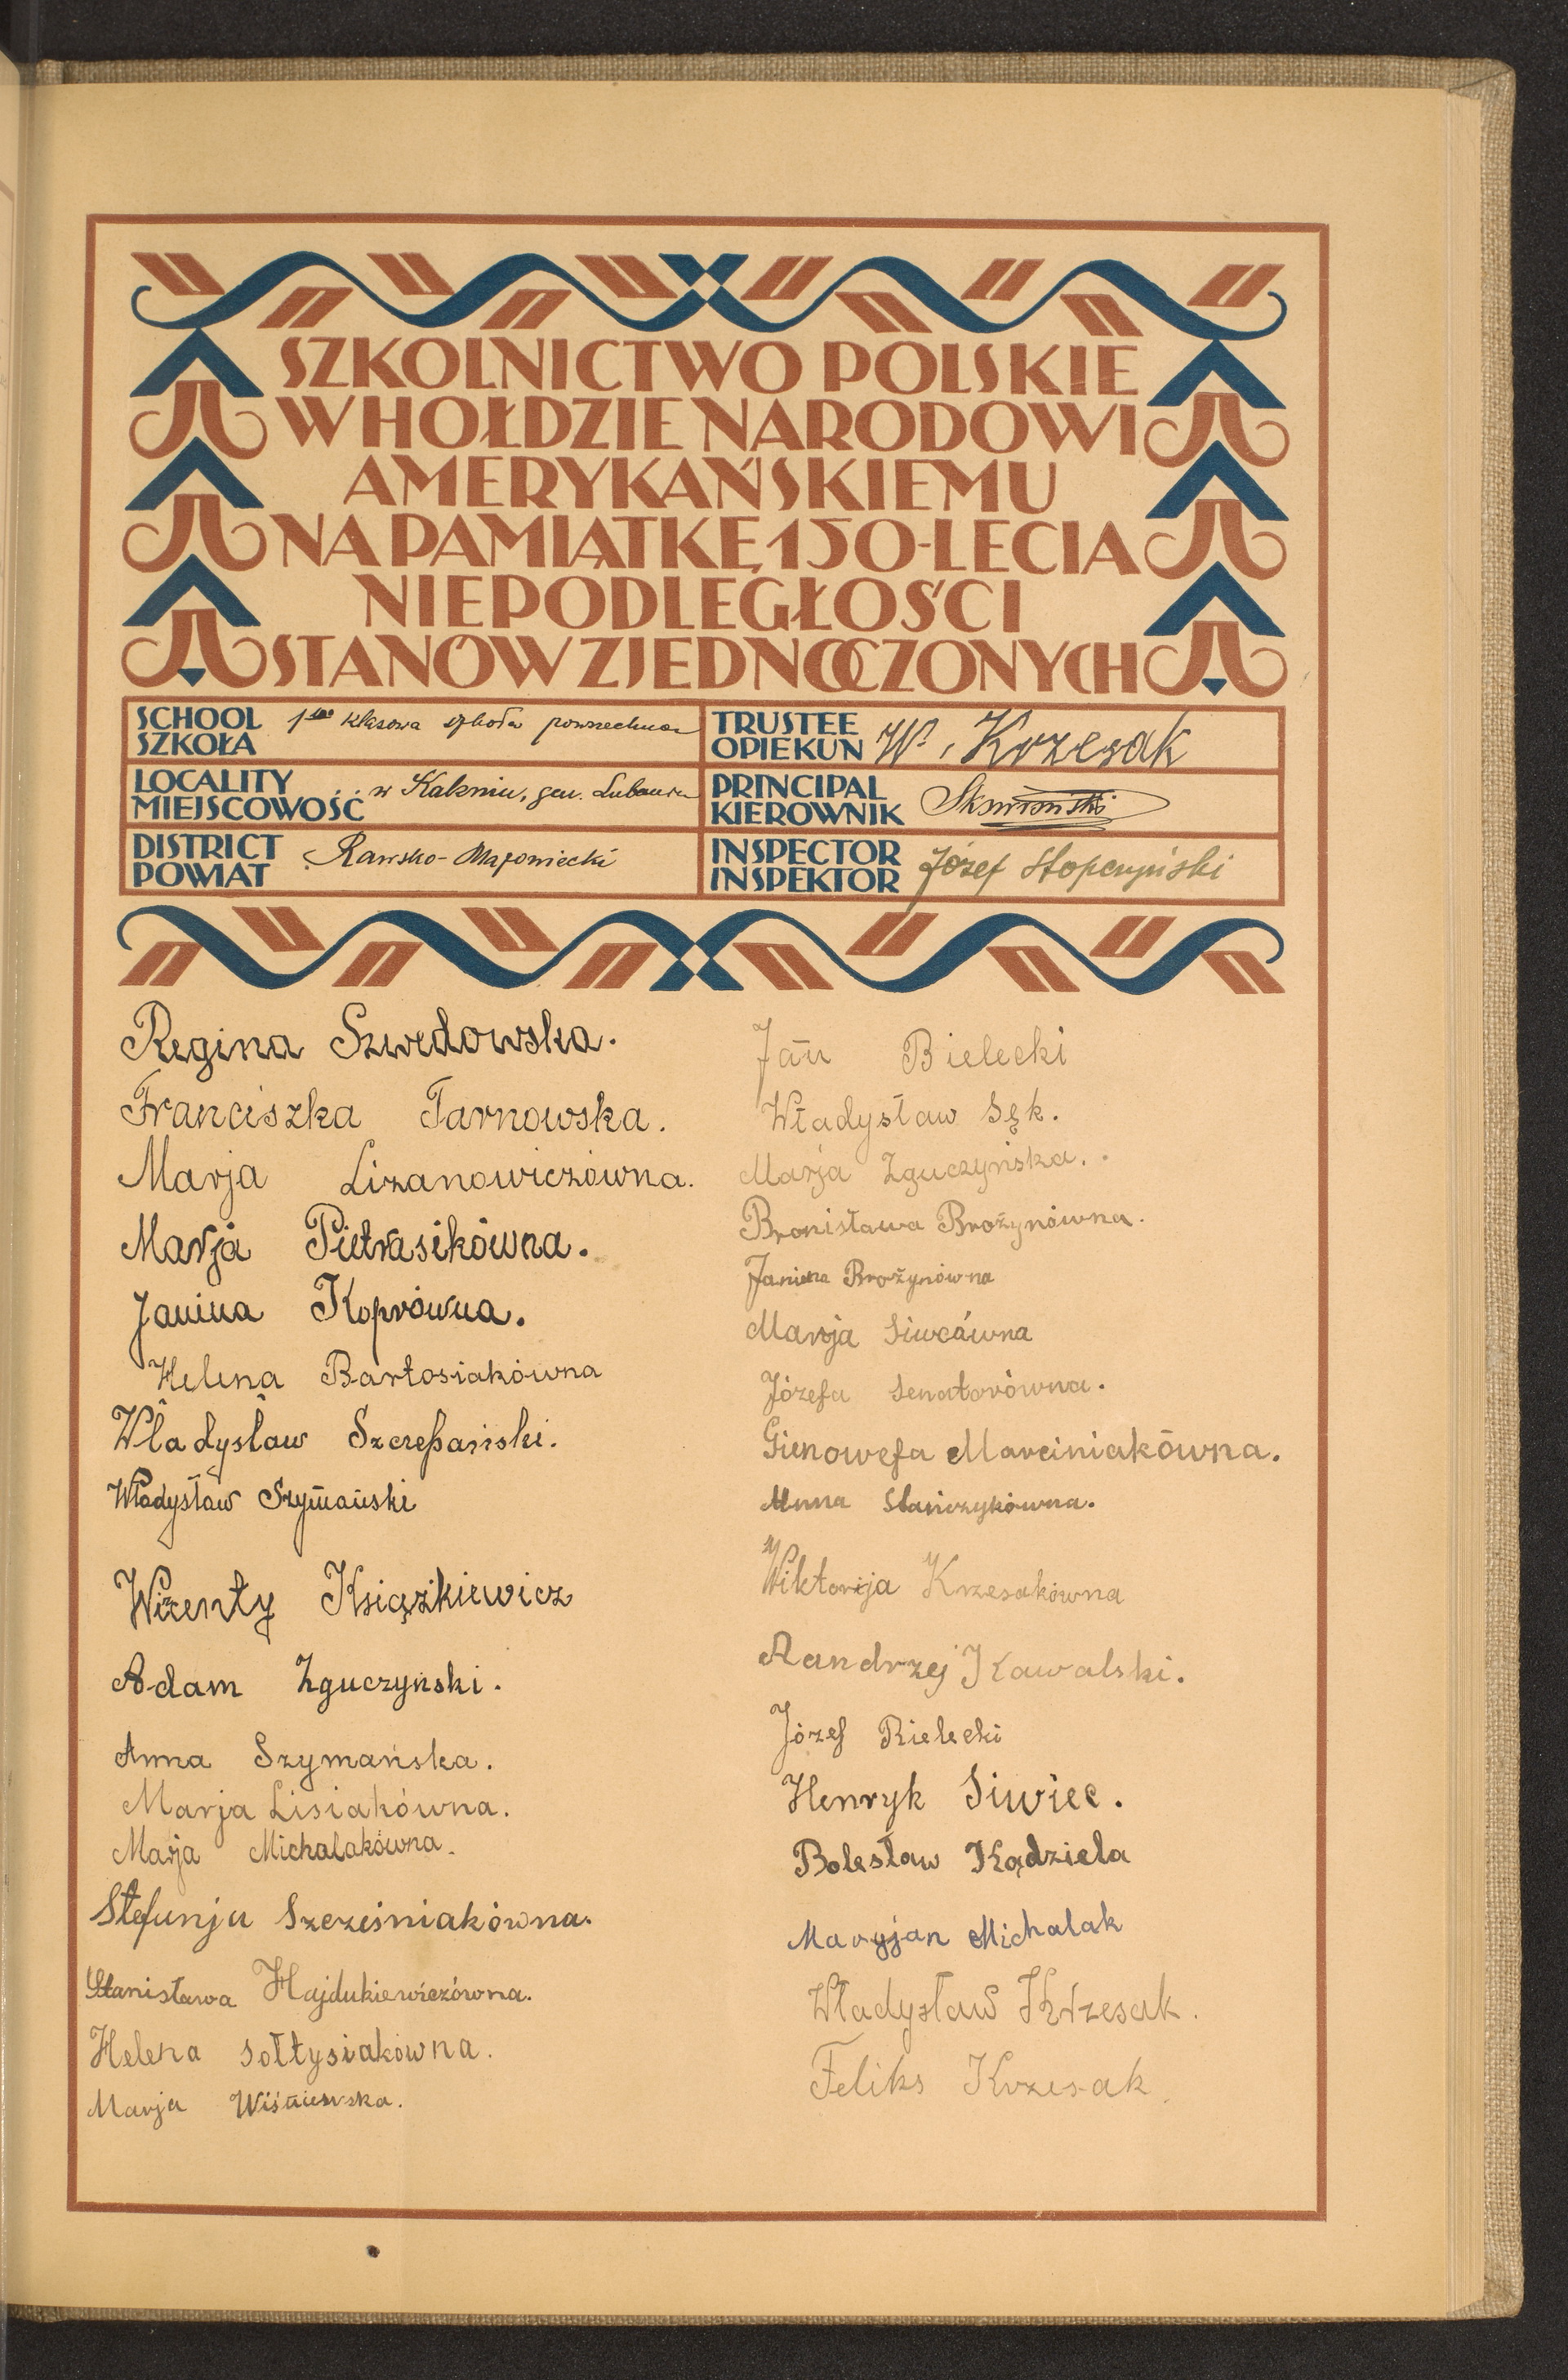 SZKOLNICTWO POLSKIE
W HOŁDZIE NARODOWI
AMERYKAŃSKIEMU
NA PAMIĄTKĘ 150-LECIA
NIEPODLEGŁOŚCI
STANÓW ZJEDNOCZONYCH
SCHOOL
SZKOŁA
1 klasowa szkoła powszechna
LOCALITY
MIEJSCOWOŚĆ
w Kaleniu, gm. Lubania
DISTRICT
POWIAT
Rawsko-Mazowiecki
TRUSTEE
OPIEKUN
W. Krzesak
PRINCIPAL
KIEROWNIK
INSPECTOR
INSPEKTOR
Józef Stopczyński
Regina Szwedowska.
Franciszka Tarnowska.
Marja Lizanowiczówna.
Marja Pietrasikówna.
Janina Koprówna.
Helena Bartosiakówna
Władysław Szczepański.
Władysław Szymański
Wizenty Książkiewicz
Adam Zguczyński.
Anna Szymańska.
Marja Lisiakówna.
Marja Michalakówna.
Stefanja Szcześniakówna.
Stanisława Hajdukiewiczówna.
Helena Sołtysiakówna.
Marja Wiśniewska.
Jan Bielecki
Władysław Sęk.
Marja Zguczyńska.
Bronisława Brożynówna.
Janina Brożynówna
Marja Siwcówna
Józefa Senatorówna.
Gienowefa Marciniakówna.
Anna Stańczykówna.
Wiktorja Krzesakówna
Aandrzej Kawalski.
Józef Bielecki
Henryk Siwiec.
Bolesław Kądziela
Maryjan Michalak
Władysław Krzesak.
Feliks Krzesak.